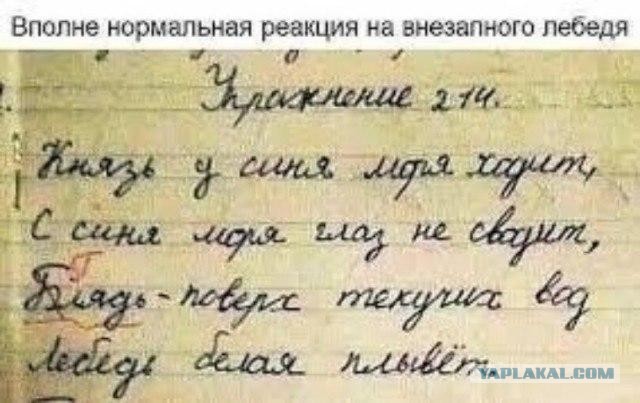 Вполне нормальная реакция на внезапного лебедя
Упражнение 214.
Князь у синя моря ходит,
С синя моря глаз не сводит,
Г
Блядь - поверх текучих вод
Лебедь белая плывёт.
YAPLAKAL.COM